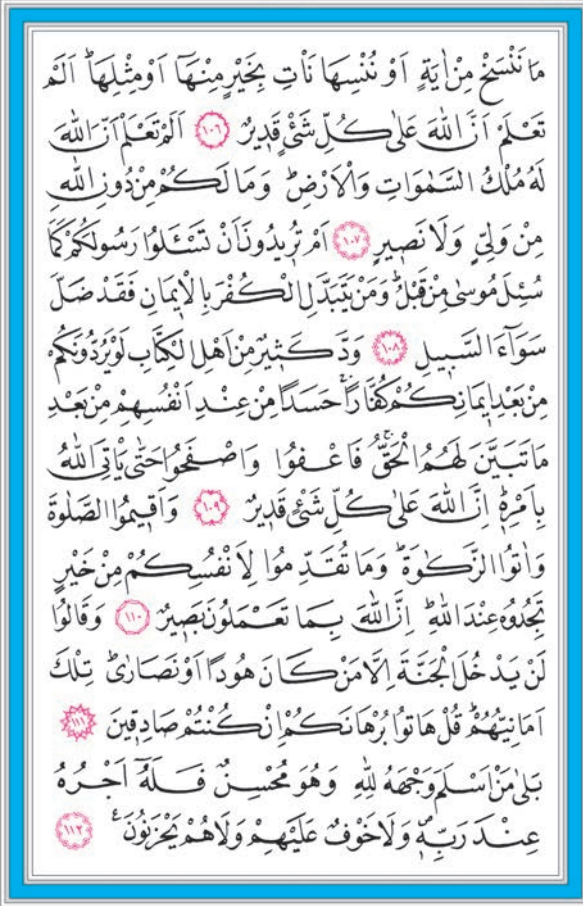 مَا نَنْسَخْ مِنْ اٰيَةٍ اَوْ نُنْسِهَا نَاْتِ بِخَيْرٍ مِنْهَٓا اَوْ مِثْلِهَاۜ اَلَمْ
تَعْلَمْ اَنَّ اللّٰهَ عَلٰى كُلِّ شَيْءٍ قَد۪يرٌ ﴿١٠٦﴾ اَلَمْ تَعْلَمْ اَنَّ اللّٰهَ
لَهُ مُلْكُ السَّمٰوَاتِ وَالْاَرْضِۜ وَمَا لَكُمْ مِنْ دُونِ اللّٰهِ
مِنْ وَلِيٍّ وَلَا نَص۪يرٍ ﴿١٠٧﴾ اَمْ تُر۪يدُونَ اَنْ تَسْـَٔلُوا رَسُولَكُمْ كَمَا
سُئِلَ مُوسٰى مِنْ قَبْلُۜ وَمَنْ يَتَبَدَّلِ الْكُفْرَ بِالْا۪يمَانِ فَقَدْ ضَلَّ
سَوَٓاءَ السَّب۪يلِ ﴿١٠٨﴾ وَدَّ كَث۪يرٌ مِنْ اَهْلِ الْكِتَابِ لَوْ يَرُدُّونَكُمْ
مِنْ بَعْدِ ا۪يمَانِكُمْ كُفَّارًاۚ حَسَدًا مِنْ عِنْدِ اَنْفُسِهِمْ مِنْ بَعْدِ
مَا تَبَيَّنَ لَهُمُ الْحَقُّۚ فَاعْفُوا وَاصْفَحُوا حَتّٰى يَاْتِيَ اللّٰهُ
بِاَمْرِه۪ۜ اِنَّ اللّٰهَ عَلٰى كُلِّ شَيْءٍ قَد۪يرٌ ﴿١٠٩﴾ وَاَق۪يمُوا الصَّلٰوةَ
وَاٰتُوا الزَّكٰوةَۜ وَمَا تُقَدِّمُوا لِاَنْفُسِكُمْ مِنْ خَيْرٍ
تَجِدُوهُ عِنْدَ اللّٰهِۜ اِنَّ اللّٰهَ بِمَا تَعْمَلُونَ بَص۪يرٌ ﴿١١٠﴾ وَقَالُوا
لَنْ يَدْخُلَ الْجَنَّةَ اِلَّا مَنْ كَانَ هُودًا اَوْ نَصَارٰىۜ تِلْكَ
اَمَانِيُّهُمْۜ قُلْ هَاتُوا بُرْهَانَكُمْ اِنْ كُنْتُمْ صَادِق۪ينَ ﴿١١١﴾
بَلٰى مَنْ اَسْلَمَ وَجْهَهُ لِلّٰهِ وَهُوَ مُحْسِنٌ فَلَهُٓ اَجْرُهُ
عِنْدَ رَبِّه۪ۖ وَلَا خَوْفٌ عَلَيْهِمْ وَلَا هُمْ يَحْزَنُونَ۟ ﴿١١٢﴾